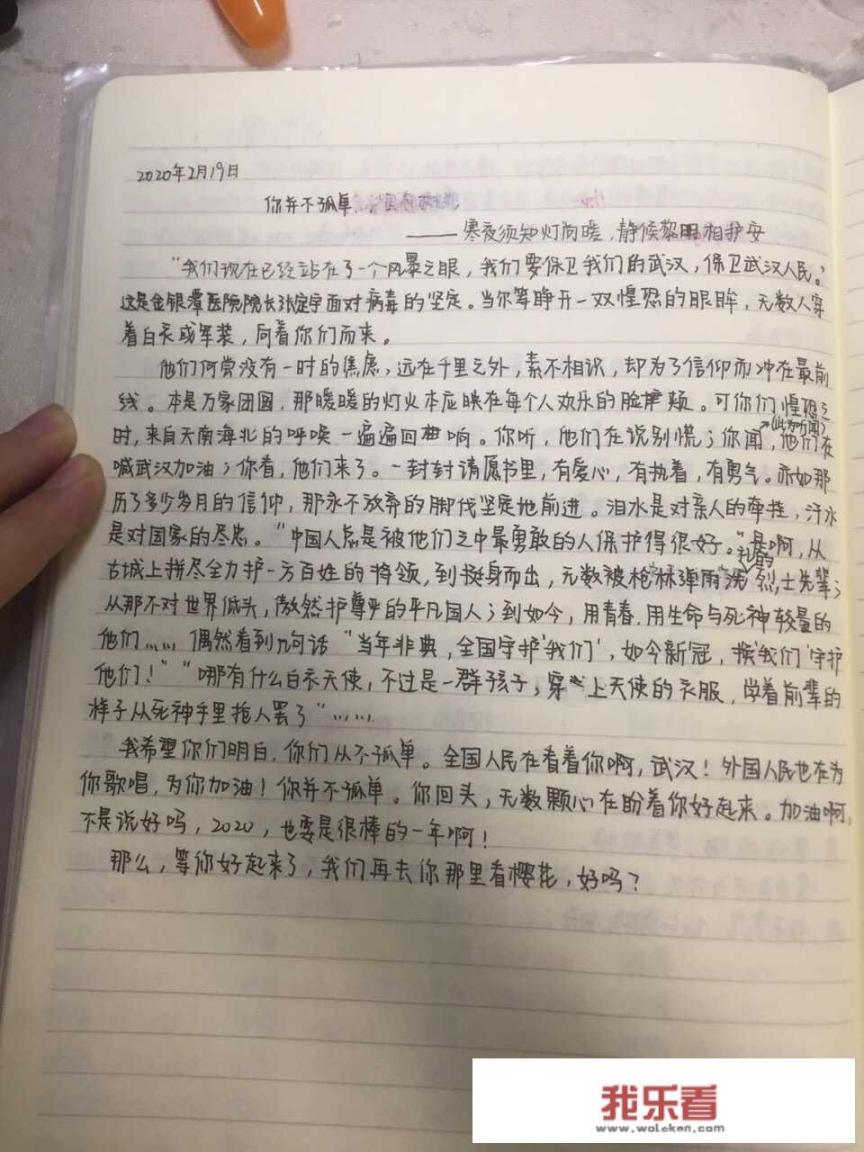 2020年2月19日
你并不孤单
——寒夜须知灯尚暖，静候黎明相护安
“我们现在已经站在了一个风暴之眼，我们要保卫我们的武汉，保卫武汉人民。”
这是金银潭医院院长张定宇面对病毒的坚定。当尔等睁开一双惶恐的眼眸，无数人穿
着白衣或军装，向着你们而来。
他们何尝没有一时的焦虑，远在千里之外，素不相识，却为了信仰而冲在最前
线。本是万家团圆，那暖暖的灯火本应映在每个人欢乐的脸颊。可你们惶恐之
时，来自天南海北的呼唤一遍遍回响。你听，他们在说别慌；你闻(此为听闻)，他们在
喊武汉加油；你看，他们来了。一封封请愿书里，有爱心，有执着，有勇气。亦如那
历了多少岁月的信仰，那永不放弃的脚伐坚定地前进。泪水是对亲人的牵挂，汗水
是对国家的尽忠。“中国人总是被他们之中最勇敢的人保护得很好。”是啊，从
古城上拼尽全力护一方百姓的将领，到挺身而出，无数被枪林弹雨洗礼的烈士先辈；
从那不对世界低头，傲然护尊严的平凡国人；到如今，用青春，用生命与死神较量的
他们…… 偶然看到几句话“当年非典，全国守护‘我们’，如今新冠，换‘我们’守护
他们！”“哪有什么白衣天使，不过是一群孩子，穿上天使的衣服，学着前辈的
样子从死神手里抢人罢了”……
我希望你们明白，你们从不孤单。全国人民在看着你啊，武汉！外国人民也在为
你歌唱，为你加油！你并不孤单。你回头，无数颗心在盼着你好起来。加油啊，
不是说好吗，2020，也要是很棒的一年啊！
那么，等你好起来了，我们再去你那里看樱花，好吗？
我乐看
www.woleken.com